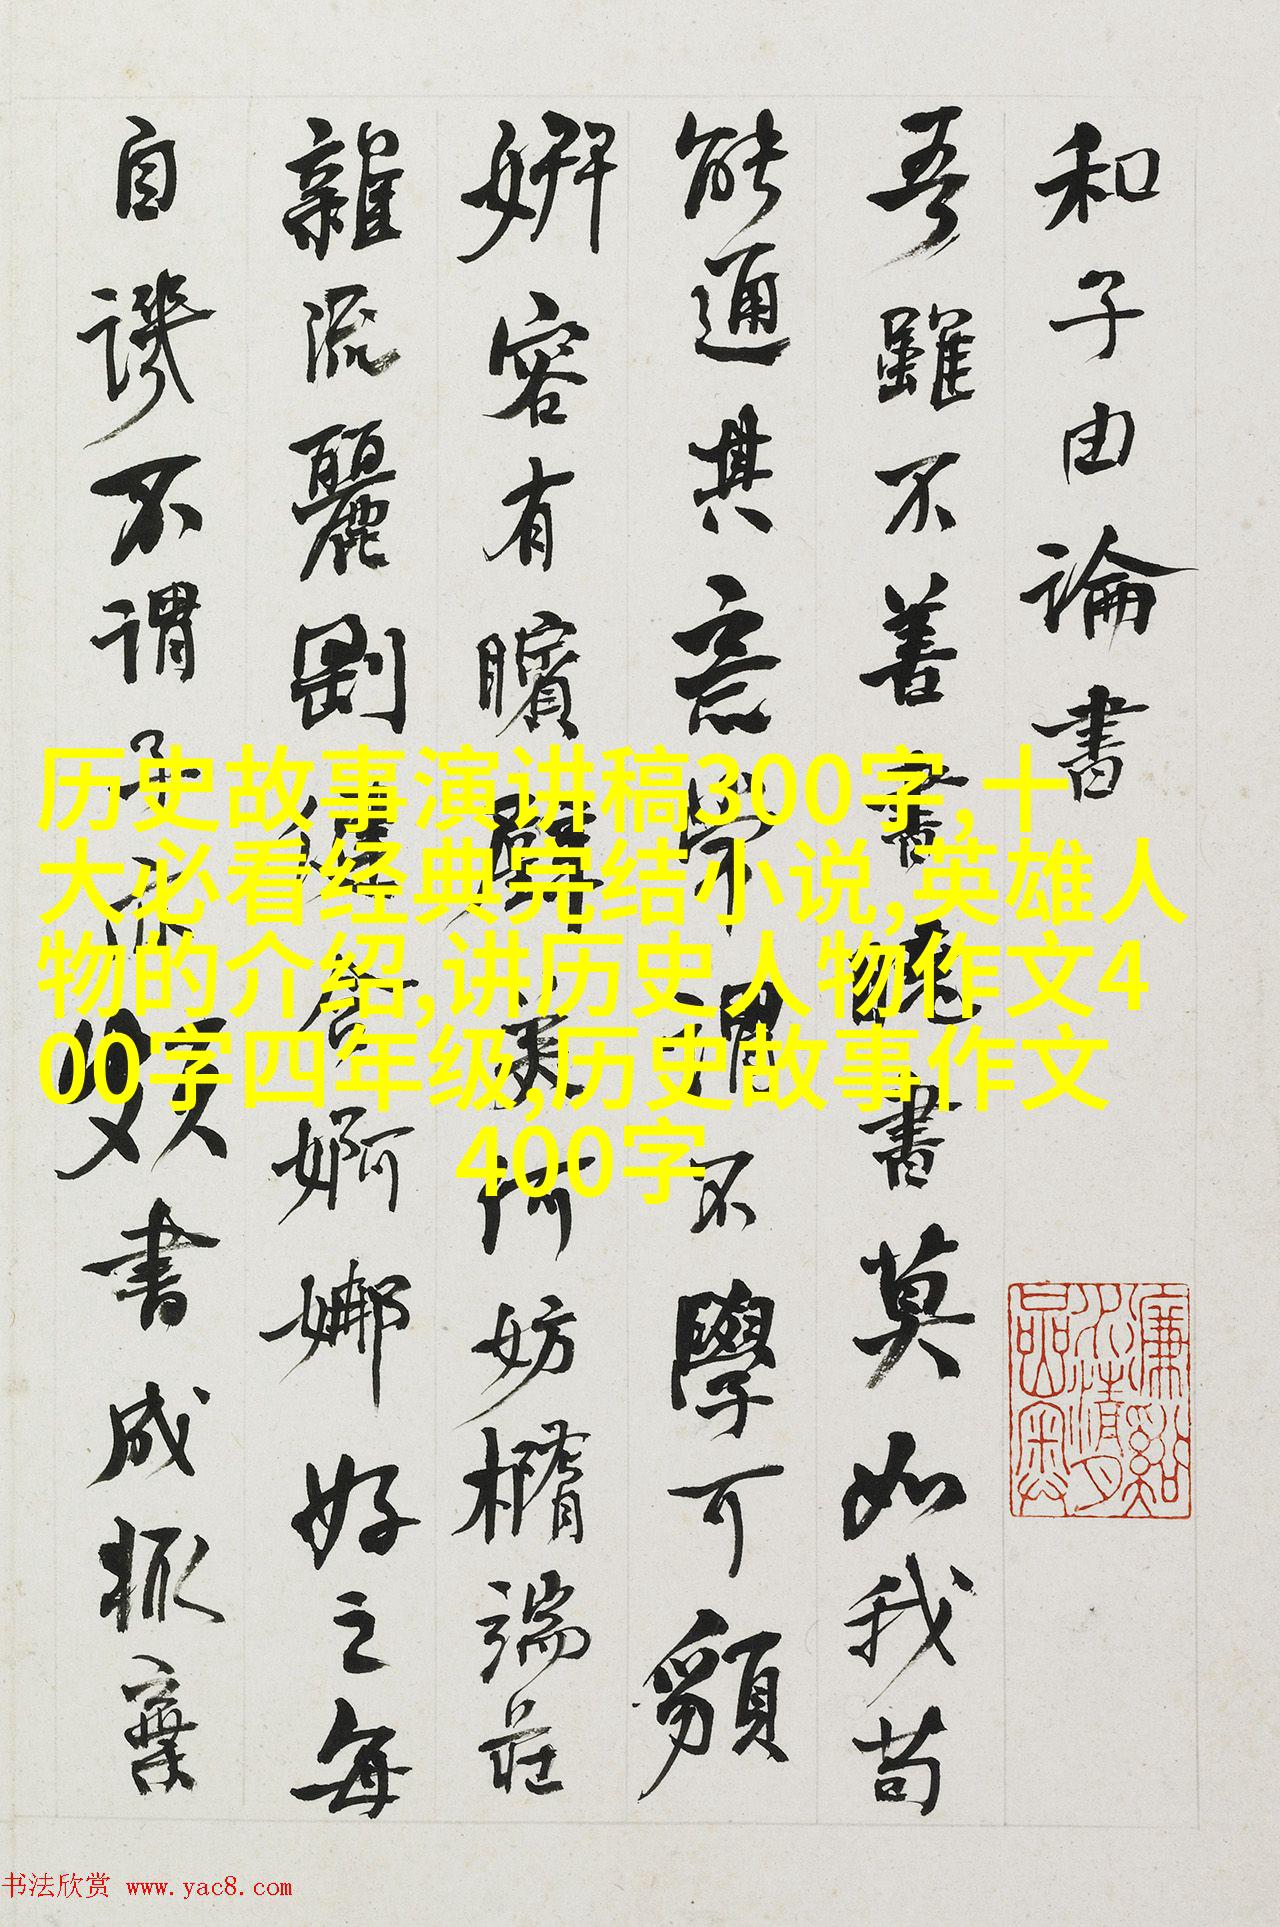 和子由論書
吾雖不善書曉書莫如我苟
能通其意常謂不學可䫉
妍容有矉璧美何妨橢端莊
雜流麗剛健含婀娜好之每
自譏不謂子亦頗書成輒棄
历史故事演讲稿300字,十
大必看经典完结小说,英雄人
物的介绍,讲历史人物作文4
00字四年级,历史故事作文
400字
书法欣赏 www.yac8.com